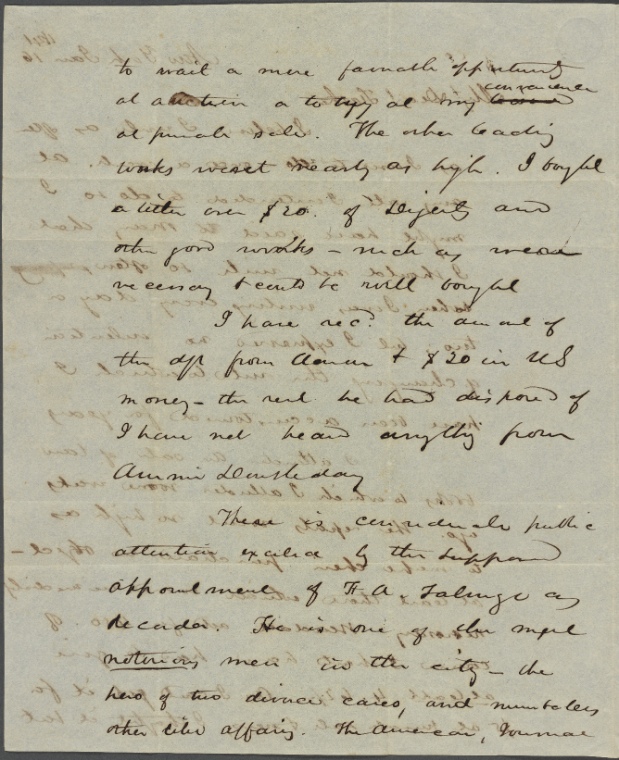 to wait a more favorable opportunity
at auction a to try at my convenience
at private sale. The other leading
works went nearly as high. I bought
a little over $20. of Digests and
other good works – such as were
necessary & could be well bought
I have recd. the amount of
the dft from & $20 in US
money – the rest he had disposed of
I have not heard anything from
There is considerable public
attention excited by the supposed
appointment of F A Talmage as
Recorder. He is one of the most
notorious men in the city – the
hero of two divorce cases, and numberless
other like affairs. The American, Journal